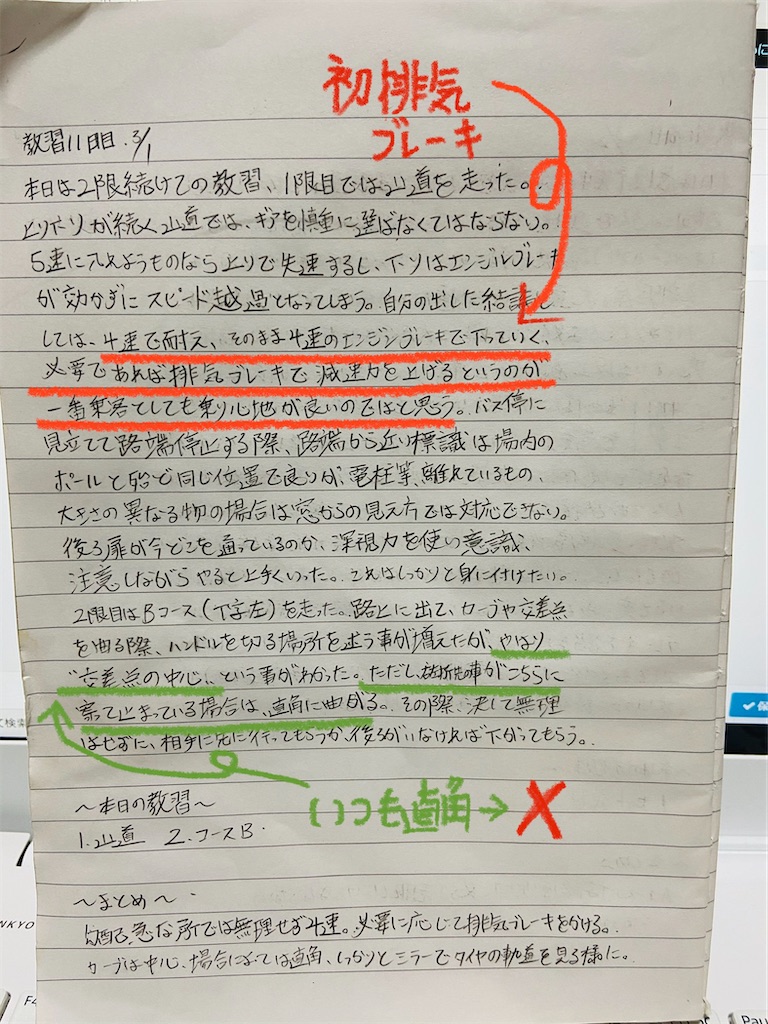 初排気
ブレーキ
教習11日目.3/1
本日は2限続けての教習、1限目では山道を走った。
上り下りが続く山道では、ギアを慎重に選ばなくてはならない。
5速に入れようものなら上りで失速するし、下りはエンジンブレーキ
が効かずにスピード越過となってしまう。自分の出した結論と
しては、4速で耐え、そのまま4速のエンジンブレーキで下っていく、
必要であれば排気ブレーキで減速力を上げるというのが
一番乗客としても乗り心地が良いのではと思う。バス停に
見立てて路端停止する際、路端から近い標識は場内の
ポールと殆ど同じ位置で良いが、電柱等、離れているもの、
大きさの異なる物の場合は窓からの見え方では対応できない。
後ろ扉が今どこを通っているのか、深視力を使い意識、
注意しながらやると上手くいった。これはしっかりと身に付けたい。
2限目はBコース(丁字左)を走った。路上に出て、カーブや交差点
を曲る際、ハンドルを切る場所を迷う事が増えたが、やはり
"交差点の中心、という事がわかった。ただし、がこちらに
寄て止まっている場合は、直角に曲がる。その際、決して無理
はせずに、相手に先に行ってもらうか、後ろがいなければ下がってもらう。
いつも直角→X
〜本日の教習〜
1.山道 2.コースB.
〜まとめ〜
勾配で急な所では無理せず4速。必要に応じて排気ブレーキをかける。
カーブは中心、場合によっては直角、しっかりとミラーでタイヤの軌道を見る様に。
NKYO
F4
Pau